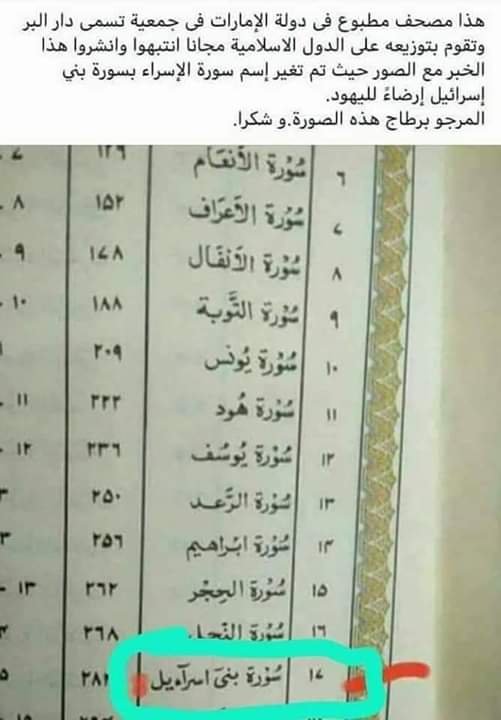 هذا مصحف مطبوع فى دولة الإمارات فى جمعية تسمى دار البر
وتقوم بتوزيعه على الدول الاسلامية مجانا انتبهوا وانشروا هذا
الخبر مع الصور حيث تم تغير إسم سورة الإسراء بسورة بني
إسرائيل إرضاءً لليهود.
المرجو برطاج هذه الصورة.و شكرا.
٦ سُوْرَة الأَنعَام ١٢٩
٧ سُوْرَة الأَعرَاف ١٥٢ ٨
٨ سُوْرَة الأَنفَال ١٧٨ ٩
٩ سُوْرَة التَّوبَة ١٨٨ ١٠
١٠ سُوْرَة يُونُس ٢٠٩
١١ سُوْرَة هُود ٢٢٢ ١١
١٢ سُوْرَة يُوسُف ٢٣٦ ١٢
١٣ سُوْرَة الرَّعد ٢٥٠
١٤ سُوْرَة ابْراهِيم ٢٥٦
١٥ سُوْرَة الحِجْر ٢٦٢ ١٣
١٦ سُوْرَة النَّحل ٢٦٨
١٧ سُوْرَة بَنىٓ اسرآءيل